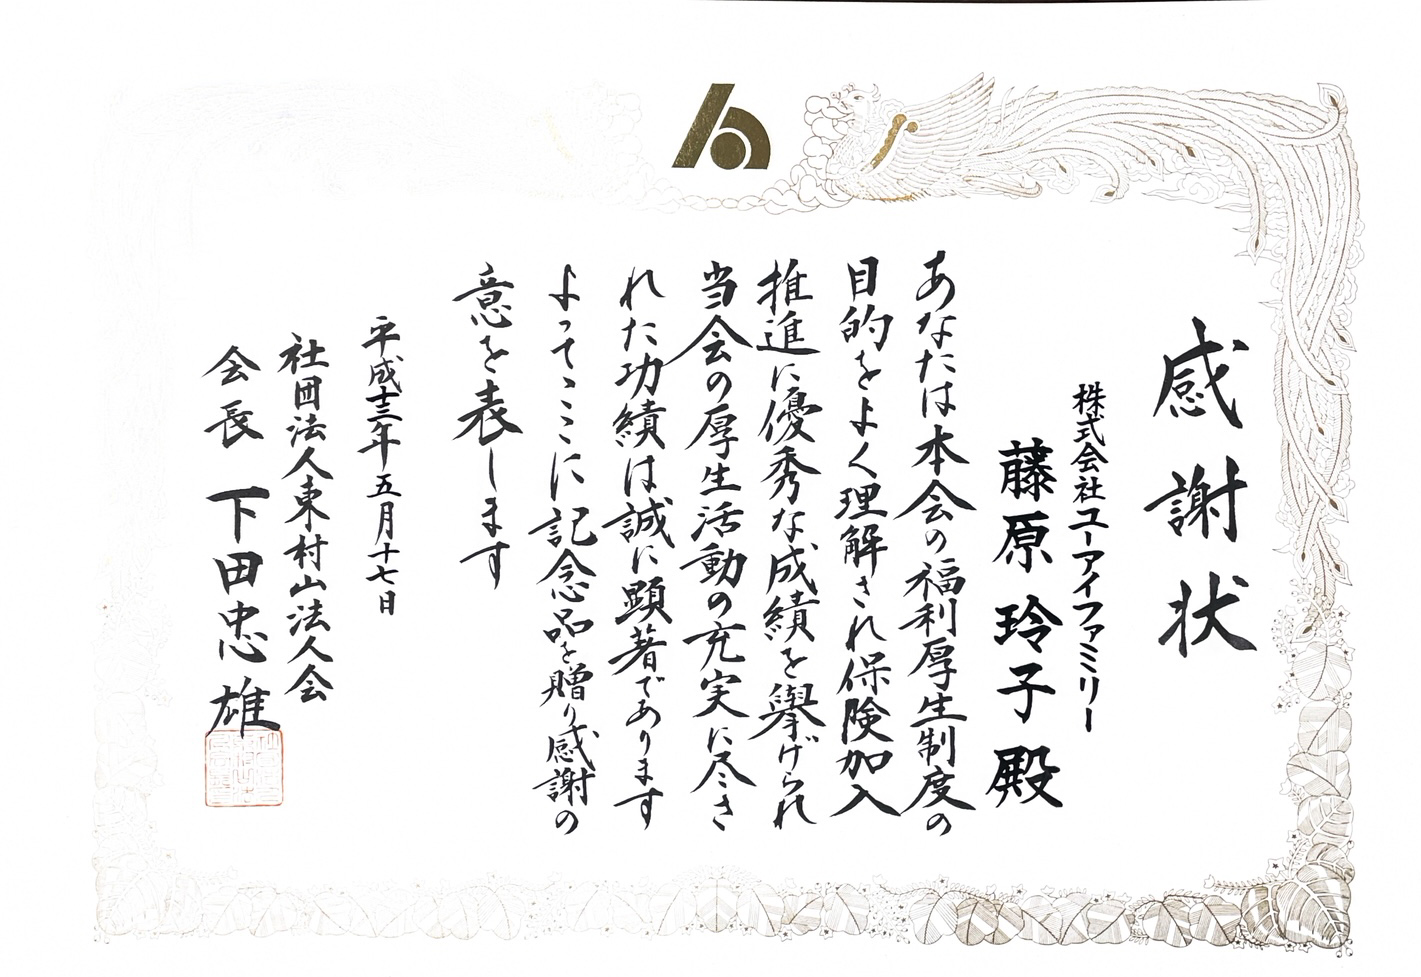 感謝状
株式会社ユーアイファミリー
藤原玲子殿
あなたは本会の福利厚生制度の
目的をよく理解され保険加入
推進に優秀な成績を擧げられ
当会の厚生活動の充実に尽さ
れた功績は誠に顕著であります
よってここに記念品を贈り感謝の
意を表します
平成十三年五月十七日
社団法人東村山法人会
会長 下田忠雄